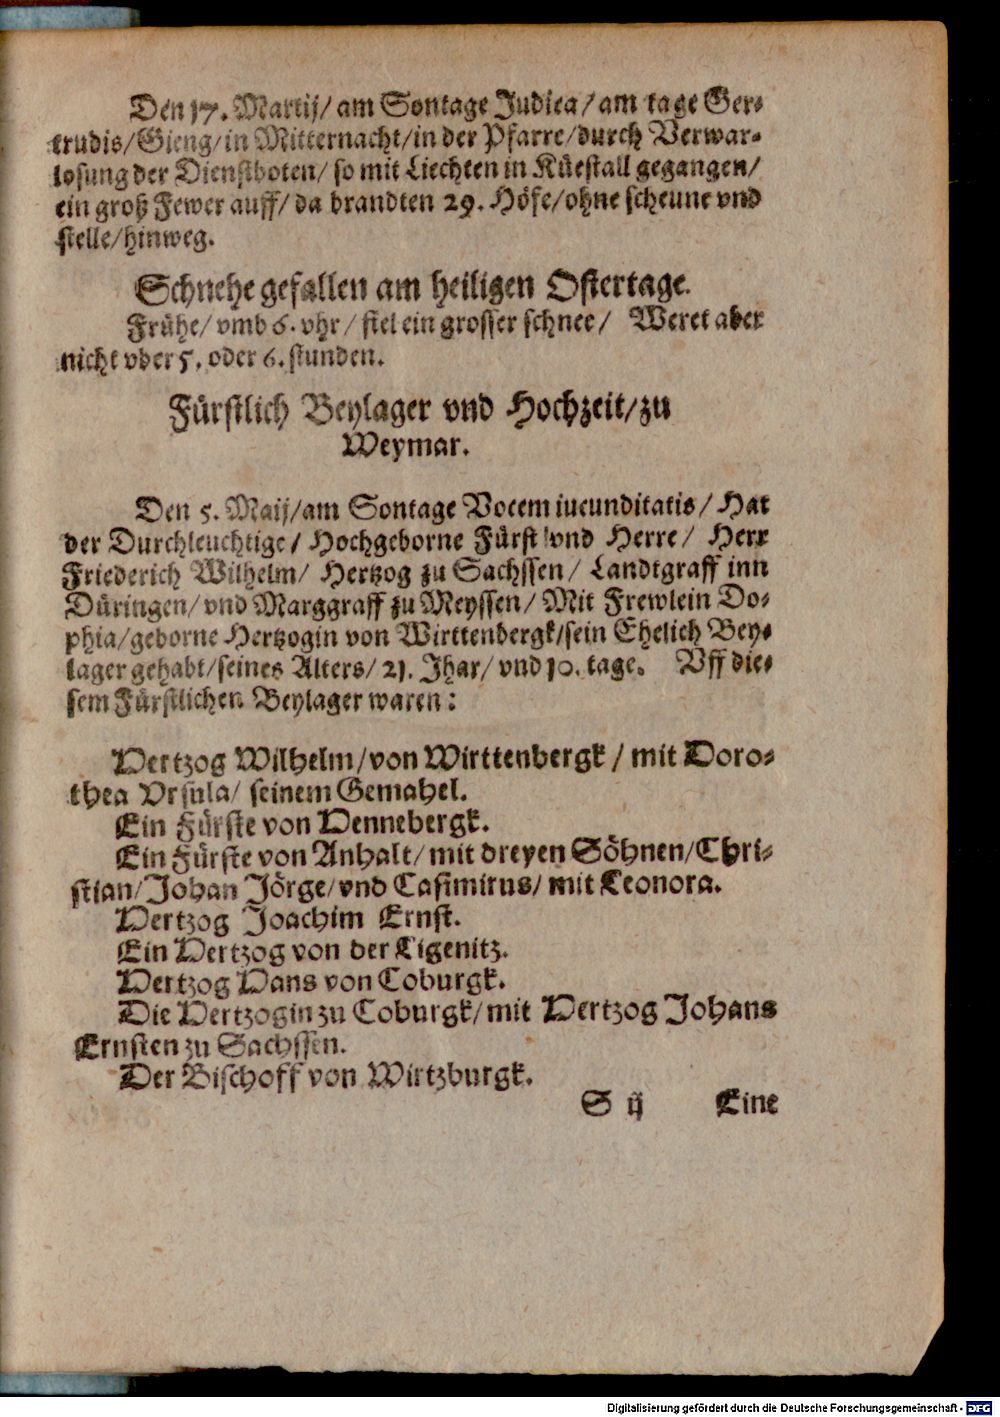 Den 17. Martij/ am Sontage Judica/ am tage Ger-
trudis/ Gieng/ in Mitternacht/ in der Pfarre/ durch Verwar-
losung der Dienstboten/ so mit Liechten in Küestall gegangen/
ein groß Fewer auff/ da brandten 29. Höfe/ ohne scheune vnd
stelle/ hinweg.
Schnehe gefallen am heiligen Ostertage.
Frühe/ vmb 6. vhr/ fiel ein grosser schnee/ Weret aber
nicht vber 5. oder 6. stunden.
Fürstlich Beylager vnd Hochzeit/ zu
Weymar.
Den 5. Maij/ am Sontage Vocem iucunditatis/ Hat
der Durchleuchtige/ Hochgeborne Fürst vnd Herre/ Herr
Friederich Wilhelm/ Hertzog zu Sachssen/ Landtgraff inn
Düringen/ vnd Marggraff zu Meyssen/ Mit Frewlein So-
phia/ geborne Hertzogin von Wirttenbergk/ sein Ehelich Bey-
lager gehabt/ seines Alters/ 21. Jhar/ vnd 10. tage. Vff die-
sem Fürstlichen Beylager waren:
Hertzog Wilhelm/ von Wirttenbergk/ mit Doro-
thea Vrsula/ seinem Gemahel.
Ein Fürste von Hennebergk.
Ein Fürste von Anhalt/ mit dreyen Söhnen/ Chri-
stian/ Johan Jörge/ vnd Casimirus/ mit Leonora.
Hertzog Joachim Ernst.
Ein Hertzog von der Ligenitz.
Hertzog Hans von Coburgk.
Die Hertzogin zu Coburgk/ mit Hertzog Johans
Ernsten zu Sachssen.
Der Bischoff von Wirtzburgk.
S ij Eine
Digitalisierung gefördert durch die Deutsche Forschungsgemeinschaft - DFG